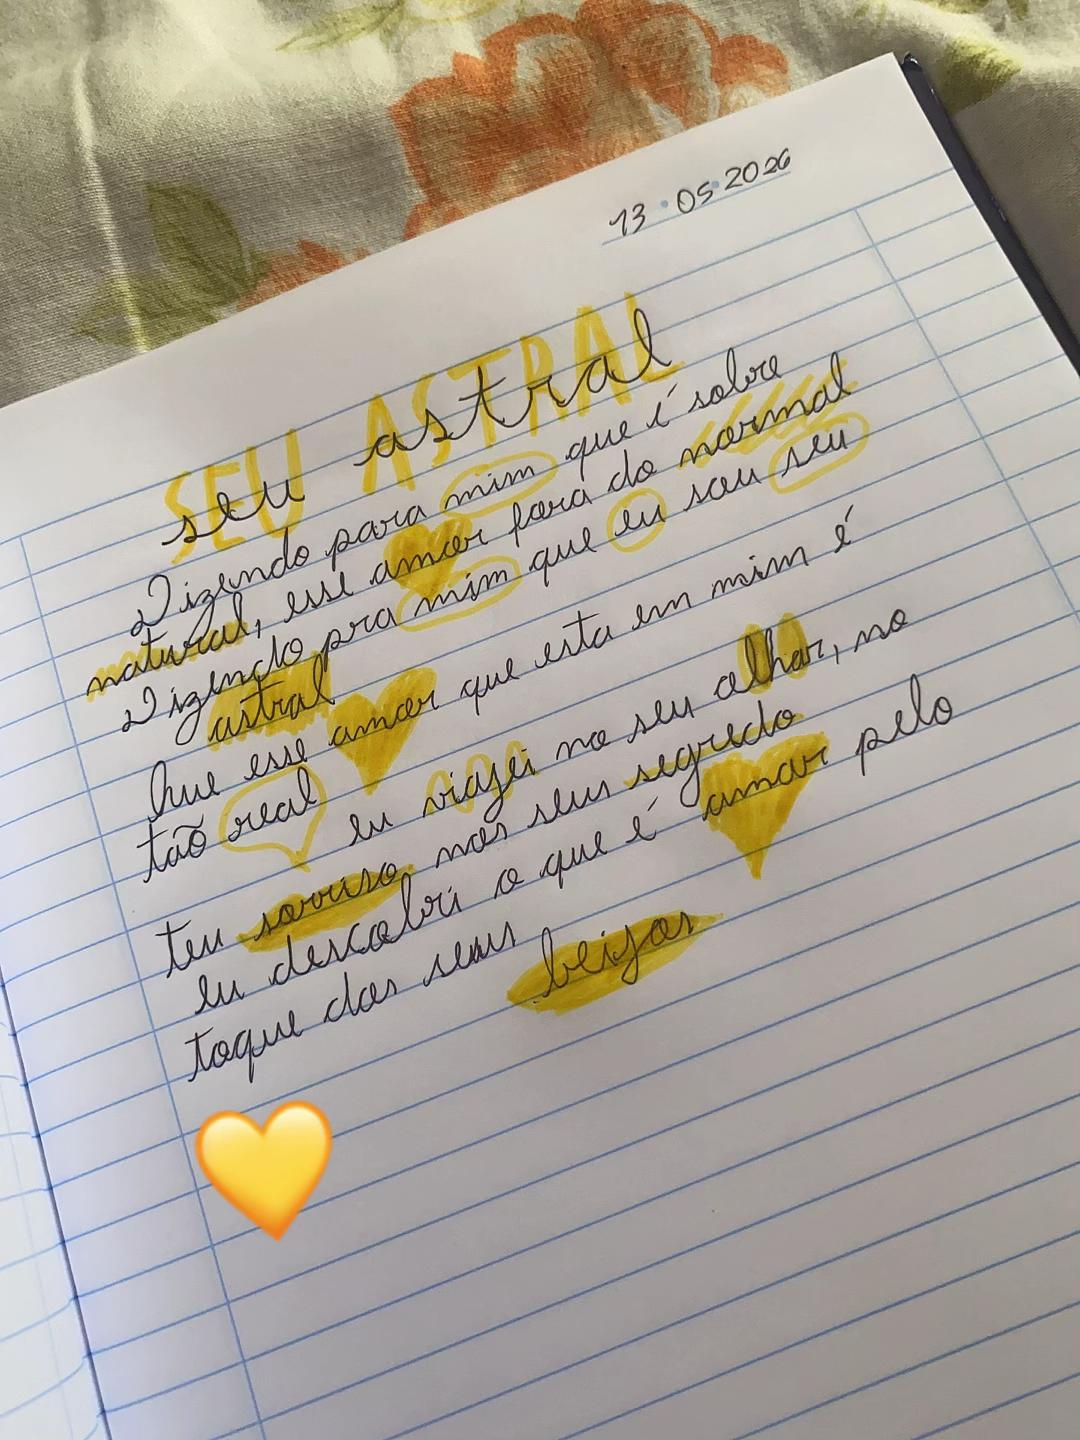 13.05.2026
SEU ASTRAL
seu astral
Dizendo para mim que é sobre
natural, esse amor fora do normal
Dizendo pra mim que eu sou seu
astral
Que esse amor que esta em mim é
tão real
eu viajei no seu olhar, no
teu sorriso nos seus segredo
eu descobri o que é amar pelo
toque dos seus beijos